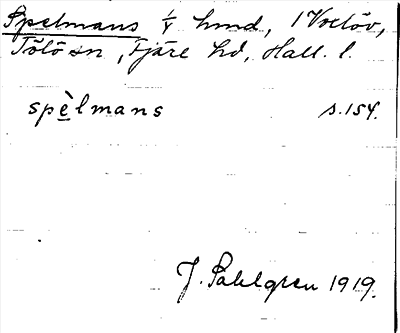 Spelmans ¼ hmd, 1 Voxlöv,
Tölö sn, Fjäre hd, Hall. l.
spèlmans s. 154.
J. Sahlgren 1919.